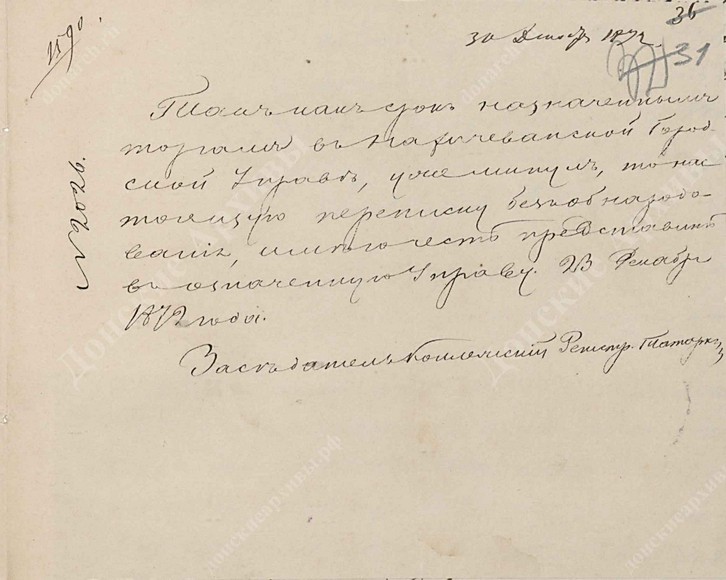 36
31
1590.
30 Декабр 1872
№ 2029.
Такъ какъ срокъ назначеннымъ
торгамъ въ Нахичеванской Город-
ской Управѣ, уже минулъ, то нас
тоящую переписку безъ обнародо-
ванія, имѣю честь представить
въ означенную Управу. 23 Декабря
1872 года.
Засѣдатель Коллежскій Регистр.